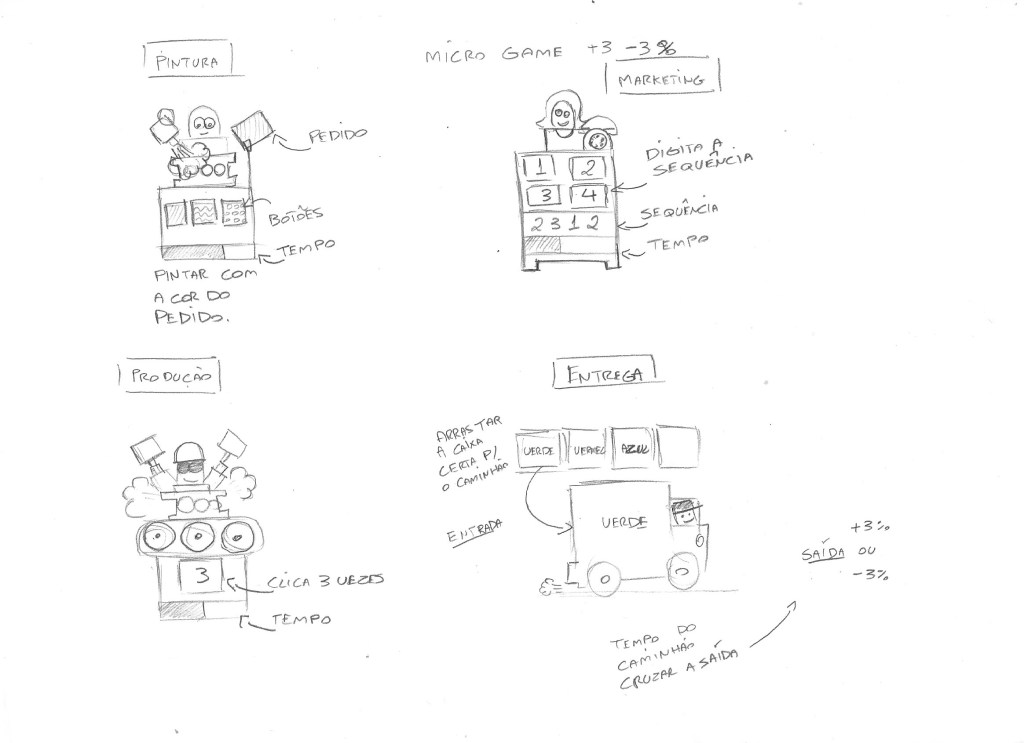 PINTURA
PEDIDO
BOTÕES
TEMPO
PINTAR COM
A COR DO
PEDIDO.
MICRO GAME +3 -3%
MARKETING
1 2
3 4
2 3 1 2
DIGITA A
SEQUÊNCIA
SEQUÊNCIA
TEMPO
PRODUÇÃO
3
CLICA 3 VEZES
TEMPO
ENTREGA
ARRASTAR
A CAIXA
CERTA P/
O CAMINHÃO
VERDE VERMEL AZUL
ENTRADA
VERDE
+3%
SAÍDA OU
-3%
TEMPO DO
CAMINHÃO
CRUZAR A SAÍDA